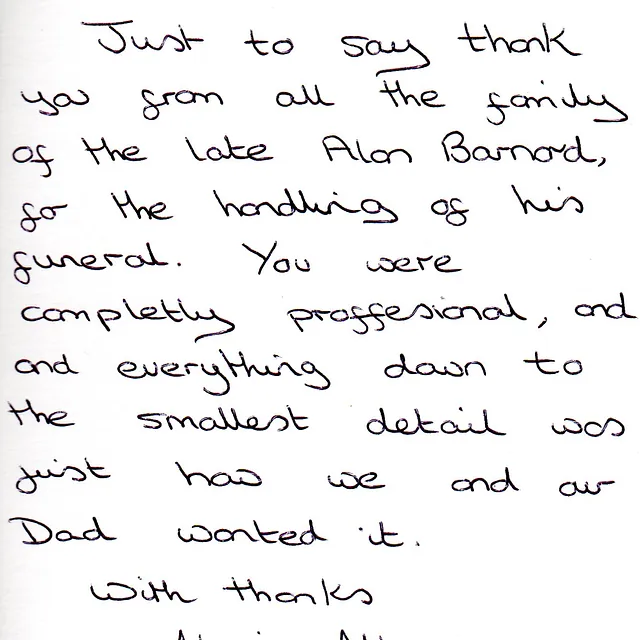 Just to say thank
you from all the family
of the late Alan Barnard,
for the handling of his
funeral. You were
completly proffesional, and
and everything down to
the smallest detail was
just how we and our
Dad wanted it.
With thanks